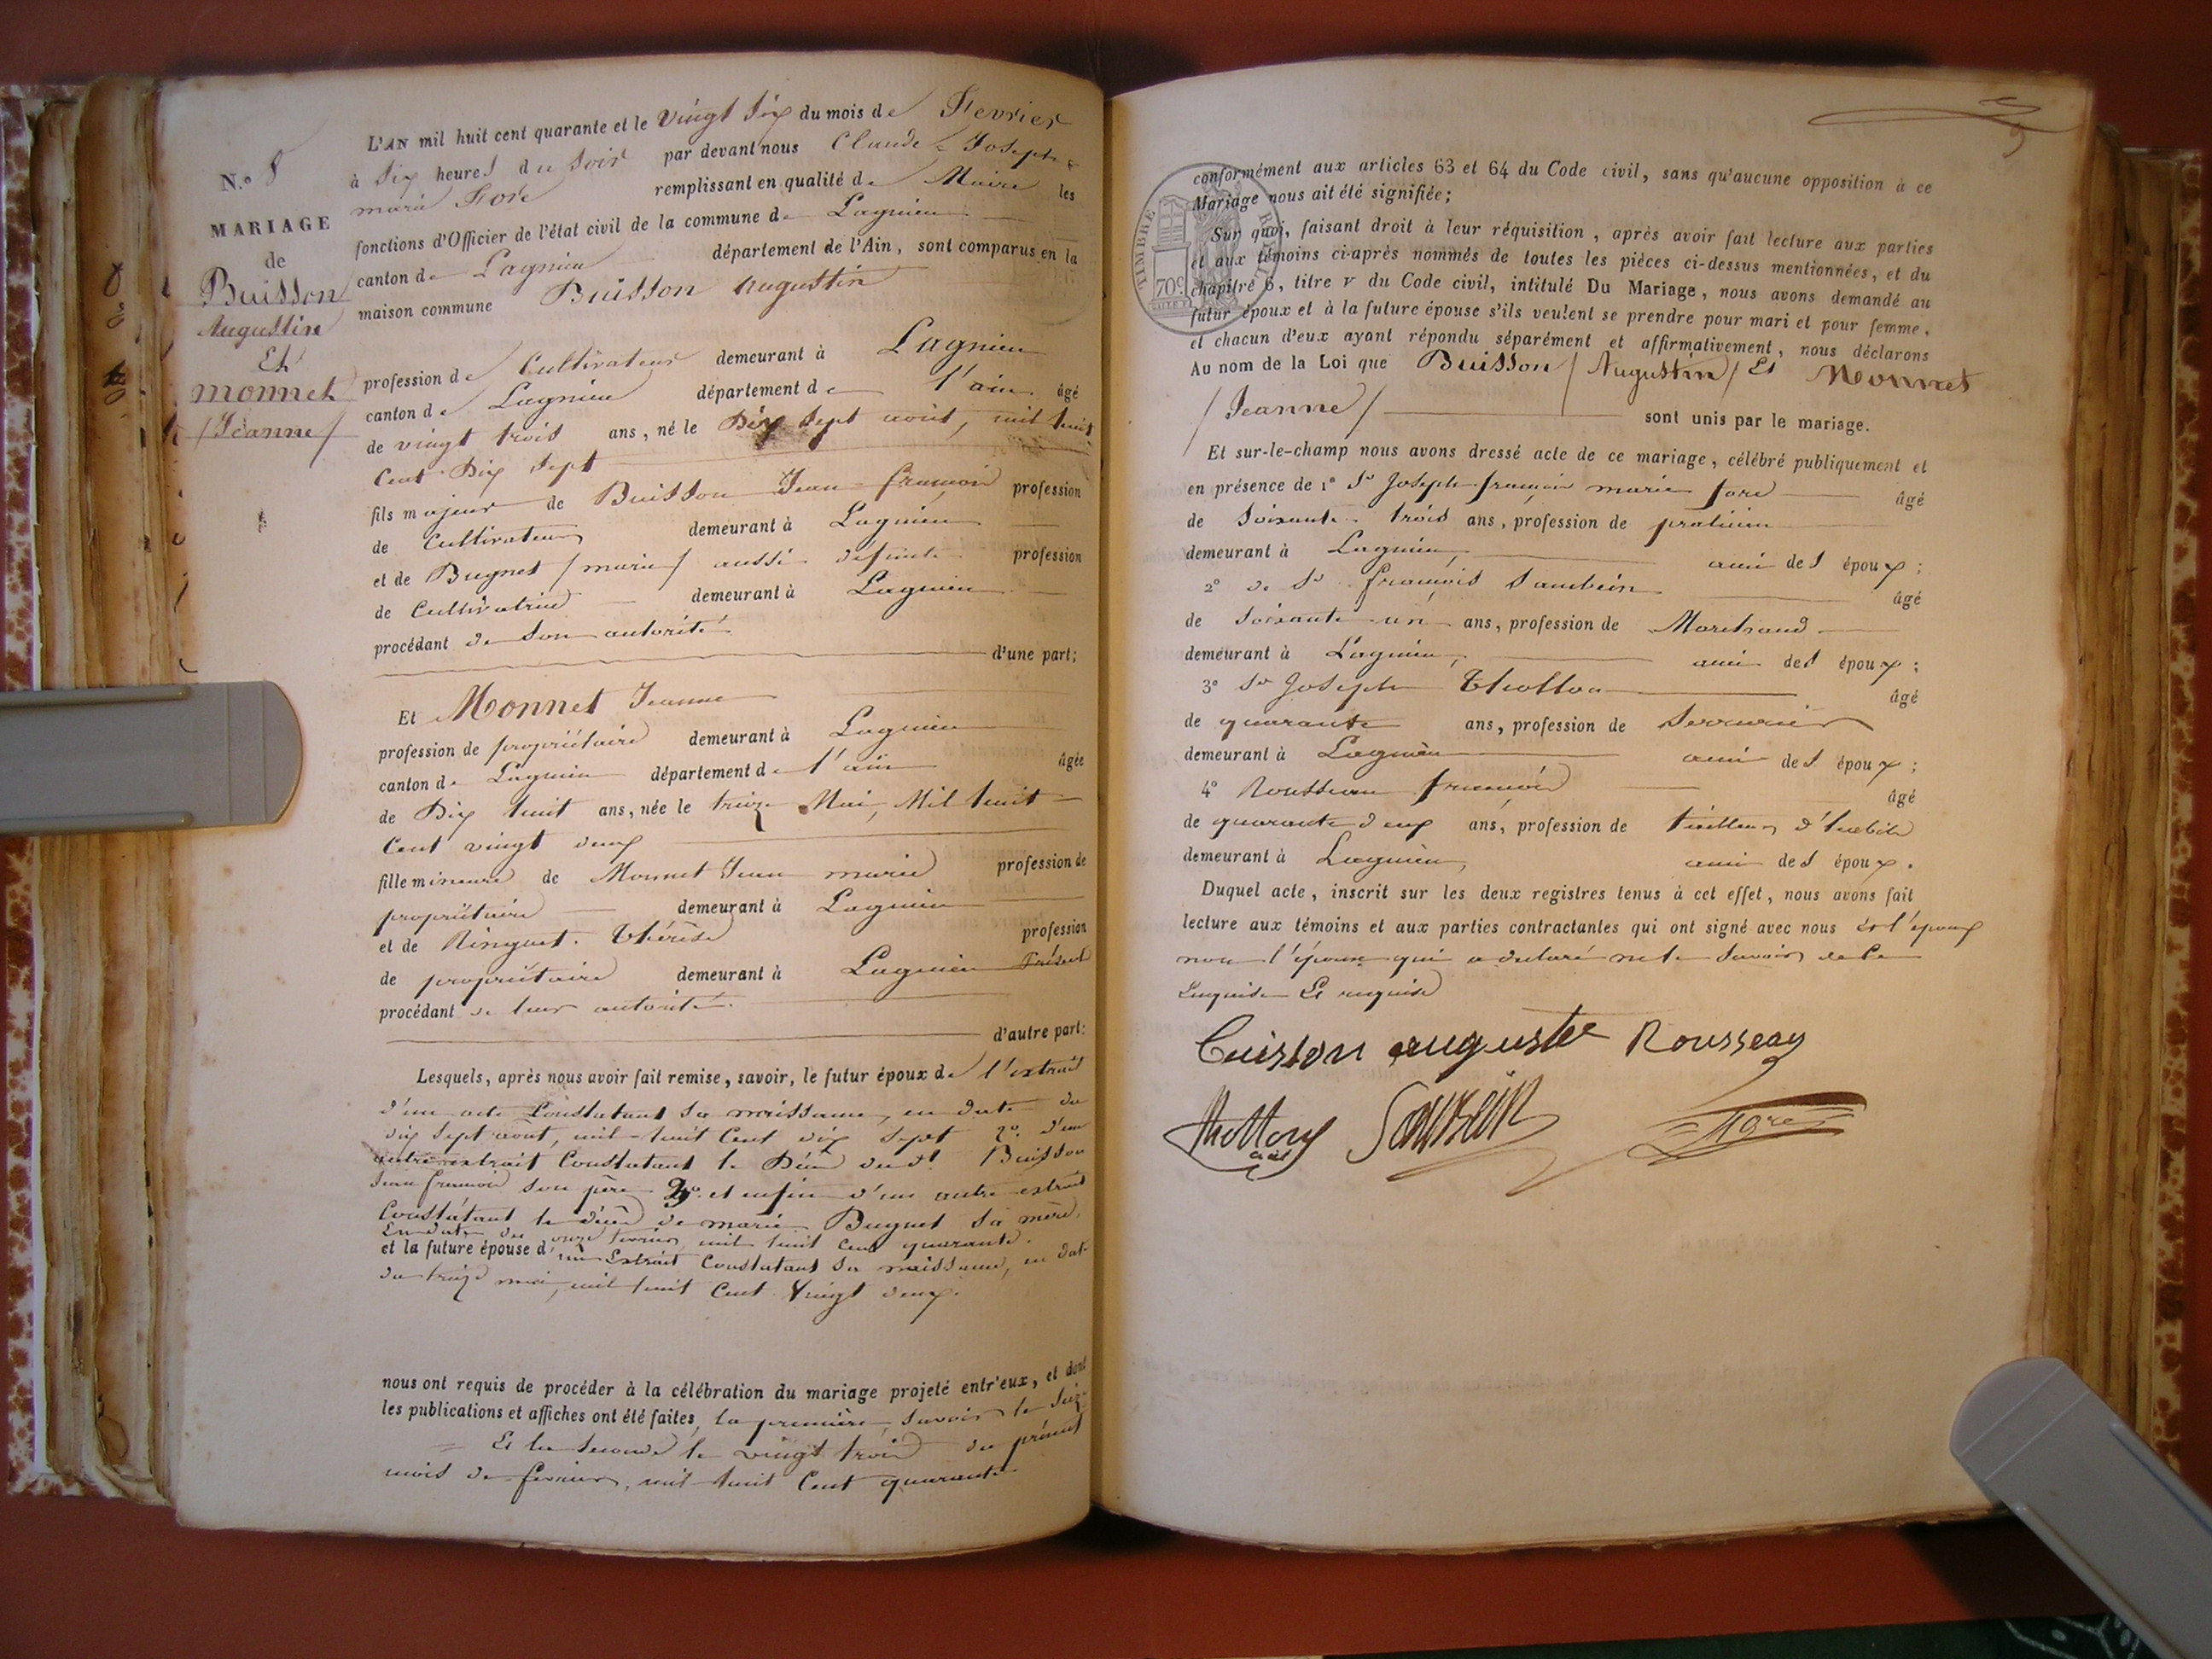 N.º 8
MARIAGE
de
Buisson
Augustin
Et
monnet
/Jeanne/
L'AN mil huit cent quarante et le vingt six du mois de Fevrier
à six heures du soir par devant nous Claude = Joseph =
marie Foré remplissant en qualité de Maire les
fonctions d'Officier de l'état civil de la commune de Lagnieu
canton de Lagnieu département de l'Ain, sont comparus en la
maison commune Buisson Augustin
profession de Cultivateur demeurant à Lagnieu
canton de Lagnieu département de l'ain âgé
de vingt trois ans, né le Dix sept août, mil huit
Cent Dix sept
fils majeur de Buisson Jean = françois profession
de Cultivateur demeurant à Lagnieu
et de Bugnet / marie / aussi défunte profession
de Cultivatrice demeurant à Lagnieu
procédant de son autorité
d'une part;
Et Monnet Jeanne
profession de propriétaire demeurant à Lagnieu
canton de Lagnieu département de l'ain âgée
de Dix huit ans, née le treize Mai, Mil huit
Cent vingt deux
fille mineure de Monnet Jean marie profession de
propriétaire demeurant à Lagnieu
et de Ringuet Thérèse profession
de propriétaire demeurant à Lagnieu
procédant de leur autorité
d'autre part:
Lesquels, après nous avoir fait remise, savoir, le futur époux de l'extrait
d'un acte Constatant sa naissance, en date du
dix sept août, mil huit Cent dix sept 2º. d'un
autre extrait Constatant le Décès dudt Buisson
Jean françois son père 3º. et enfin d'un autre extrait
Constatant le décès de marie Bugnet sa mère,
En date du onze fevrier mil huit Cent quarante.
et la future épouse d'un Extrait Constatant sa naissance, en date
du treize mai, mil huit Cent Vingt deux.
nous ont requis de procéder à la célébration du mariage projeté entr'eux, et dont
les publications et affiches ont été faites, la première, savoir le seize
Et la seconde le vingt trois du présent
mois de fevrier, mil huit Cent quarante
TIMBRE ROYAL
70c
conformément aux articles 63 et 64 du Code civil, sans qu'aucune opposition à ce
Mariage nous ait été signifiée;
Sur quoi, faisant droit à leur réquisition, après avoir fait lecture aux parties
et aux témoins ci-après nommés de toutes les pièces ci-dessus mentionnées, et du
chapitre 6, titre v du Code civil, intitulé Du Mariage, nous avons demandé au
futur époux et à la future épouse s'ils veulent se prendre pour mari et pour femme,
et chacun d'eux ayant répondu séparément et affirmativement, nous déclarons
Au nom de la Loi que Buisson / Augustin / Et Monnet
/ Jeanne / sont unis par le mariage.
Et sur-le-champ nous avons dressé acte de ce mariage, célébré publiquement et
en présence de 1º Sr Joseph françois marie foré âgé
de soixante trois ans, profession de praticien
demeurant à Lagnieu, ami des époux;
2º de Sr françois Sambein âgé
de soixante un ans, profession de Marchand
demeurant à Lagnieu, ami des époux;
3º Sr Joseph Thollon âgé
de quarante ans, profession de serrurier
demeurant à Lagnieu ami des époux;
4º Rousseau françois âgé
de quarante deux ans, profession de tailleur d'habits
demeurant à Lagnieu, ami des époux.
Duquel acte, inscrit sur les deux registres tenus à cet effet, nous avons fait
lecture aux témoins et aux parties contractantes qui ont signé avec nous et l'époux
non l'épouse qui a déclaré ne le savoir de ce
Enquise Et requise
Buisson auguste Rousseau
Thollon Sambein Foré